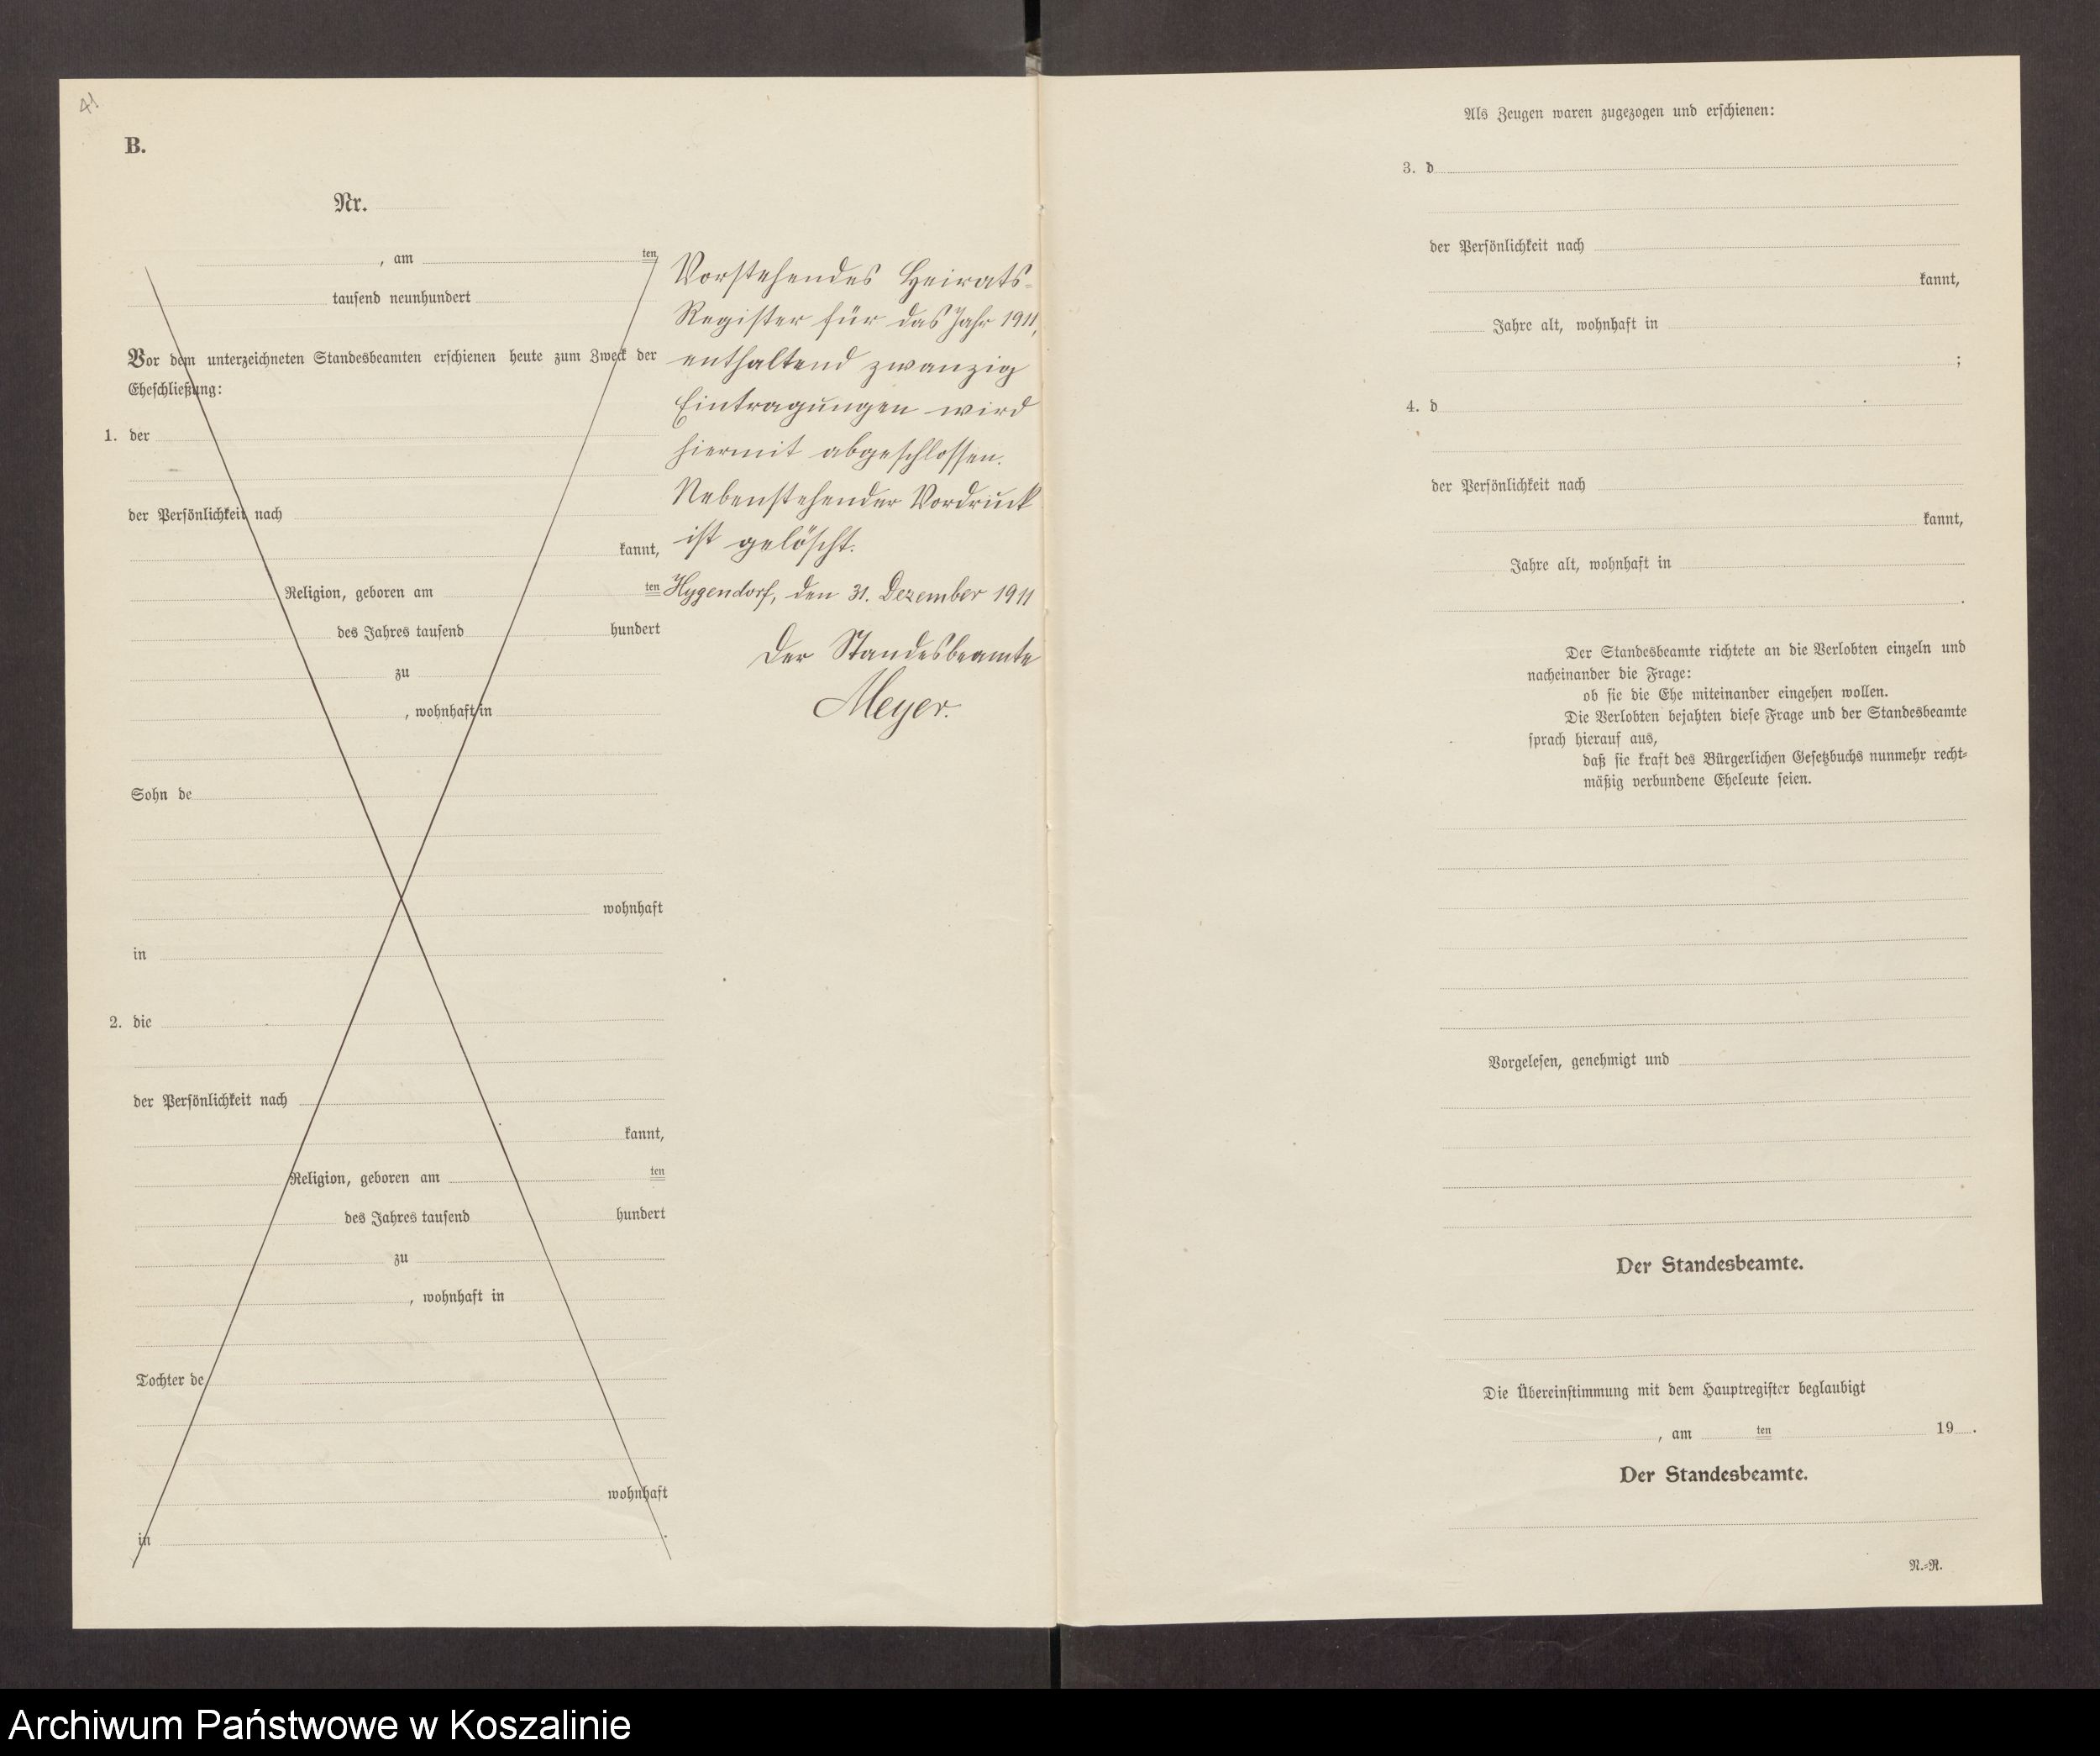 41
B.
Nr.
, am ten
tausend neunhundert
Vor dem unterzeichneten Standesbeamten erschienen heute zum Zweck der
Eheschließung:
1. der
der Persönlichkeit nach
kannt,
Religion, geboren am ten
des Jahres tausend hundert
zu
, wohnhaft in
Sohn de
wohnhaft
in
2. die
der Persönlichkeit nach
kannt,
Religion, geboren am ten
des Jahres tausend hundert
zu
, wohnhaft in
Tochter de
wohnhaft
in
Vorstehendes Heirats-
Register für das Jahr 1911,
enthaltend zwanzig
Eintragungen wird
hiermit abgeschlossen.
Nebenstehender Vordruck
ist gelöscht.
Hygendorf, den 31. Dezember 1911
Der Standesbeamte
Meyer.
Als Zeugen waren zugezogen und erschienen:
3. d
der Persönlichkeit nach
kannt,
Jahre alt, wohnhaft in
;
4. d
der Persönlichkeit nach
kannt,
Jahre alt, wohnhaft in
.
Der Standesbeamte richtete an die Verlobten einzeln und
nacheinander die Frage:
ob sie die Ehe miteinander eingehen wollen.
Die Verlobten bejahten diese Frage und der Standesbeamte
sprach hierauf aus,
daß sie kraft des Bürgerlichen Gesetzbuchs nunmehr recht-
mäßig verbundene Eheleute seien.
Vorgelesen, genehmigt und
Der Standesbeamte.
Die Übereinstimmung mit dem Hauptregister beglaubigt
, am ten 19 .
Der Standesbeamte.
N.-R.
Archiwum Państwowe w Koszalinie